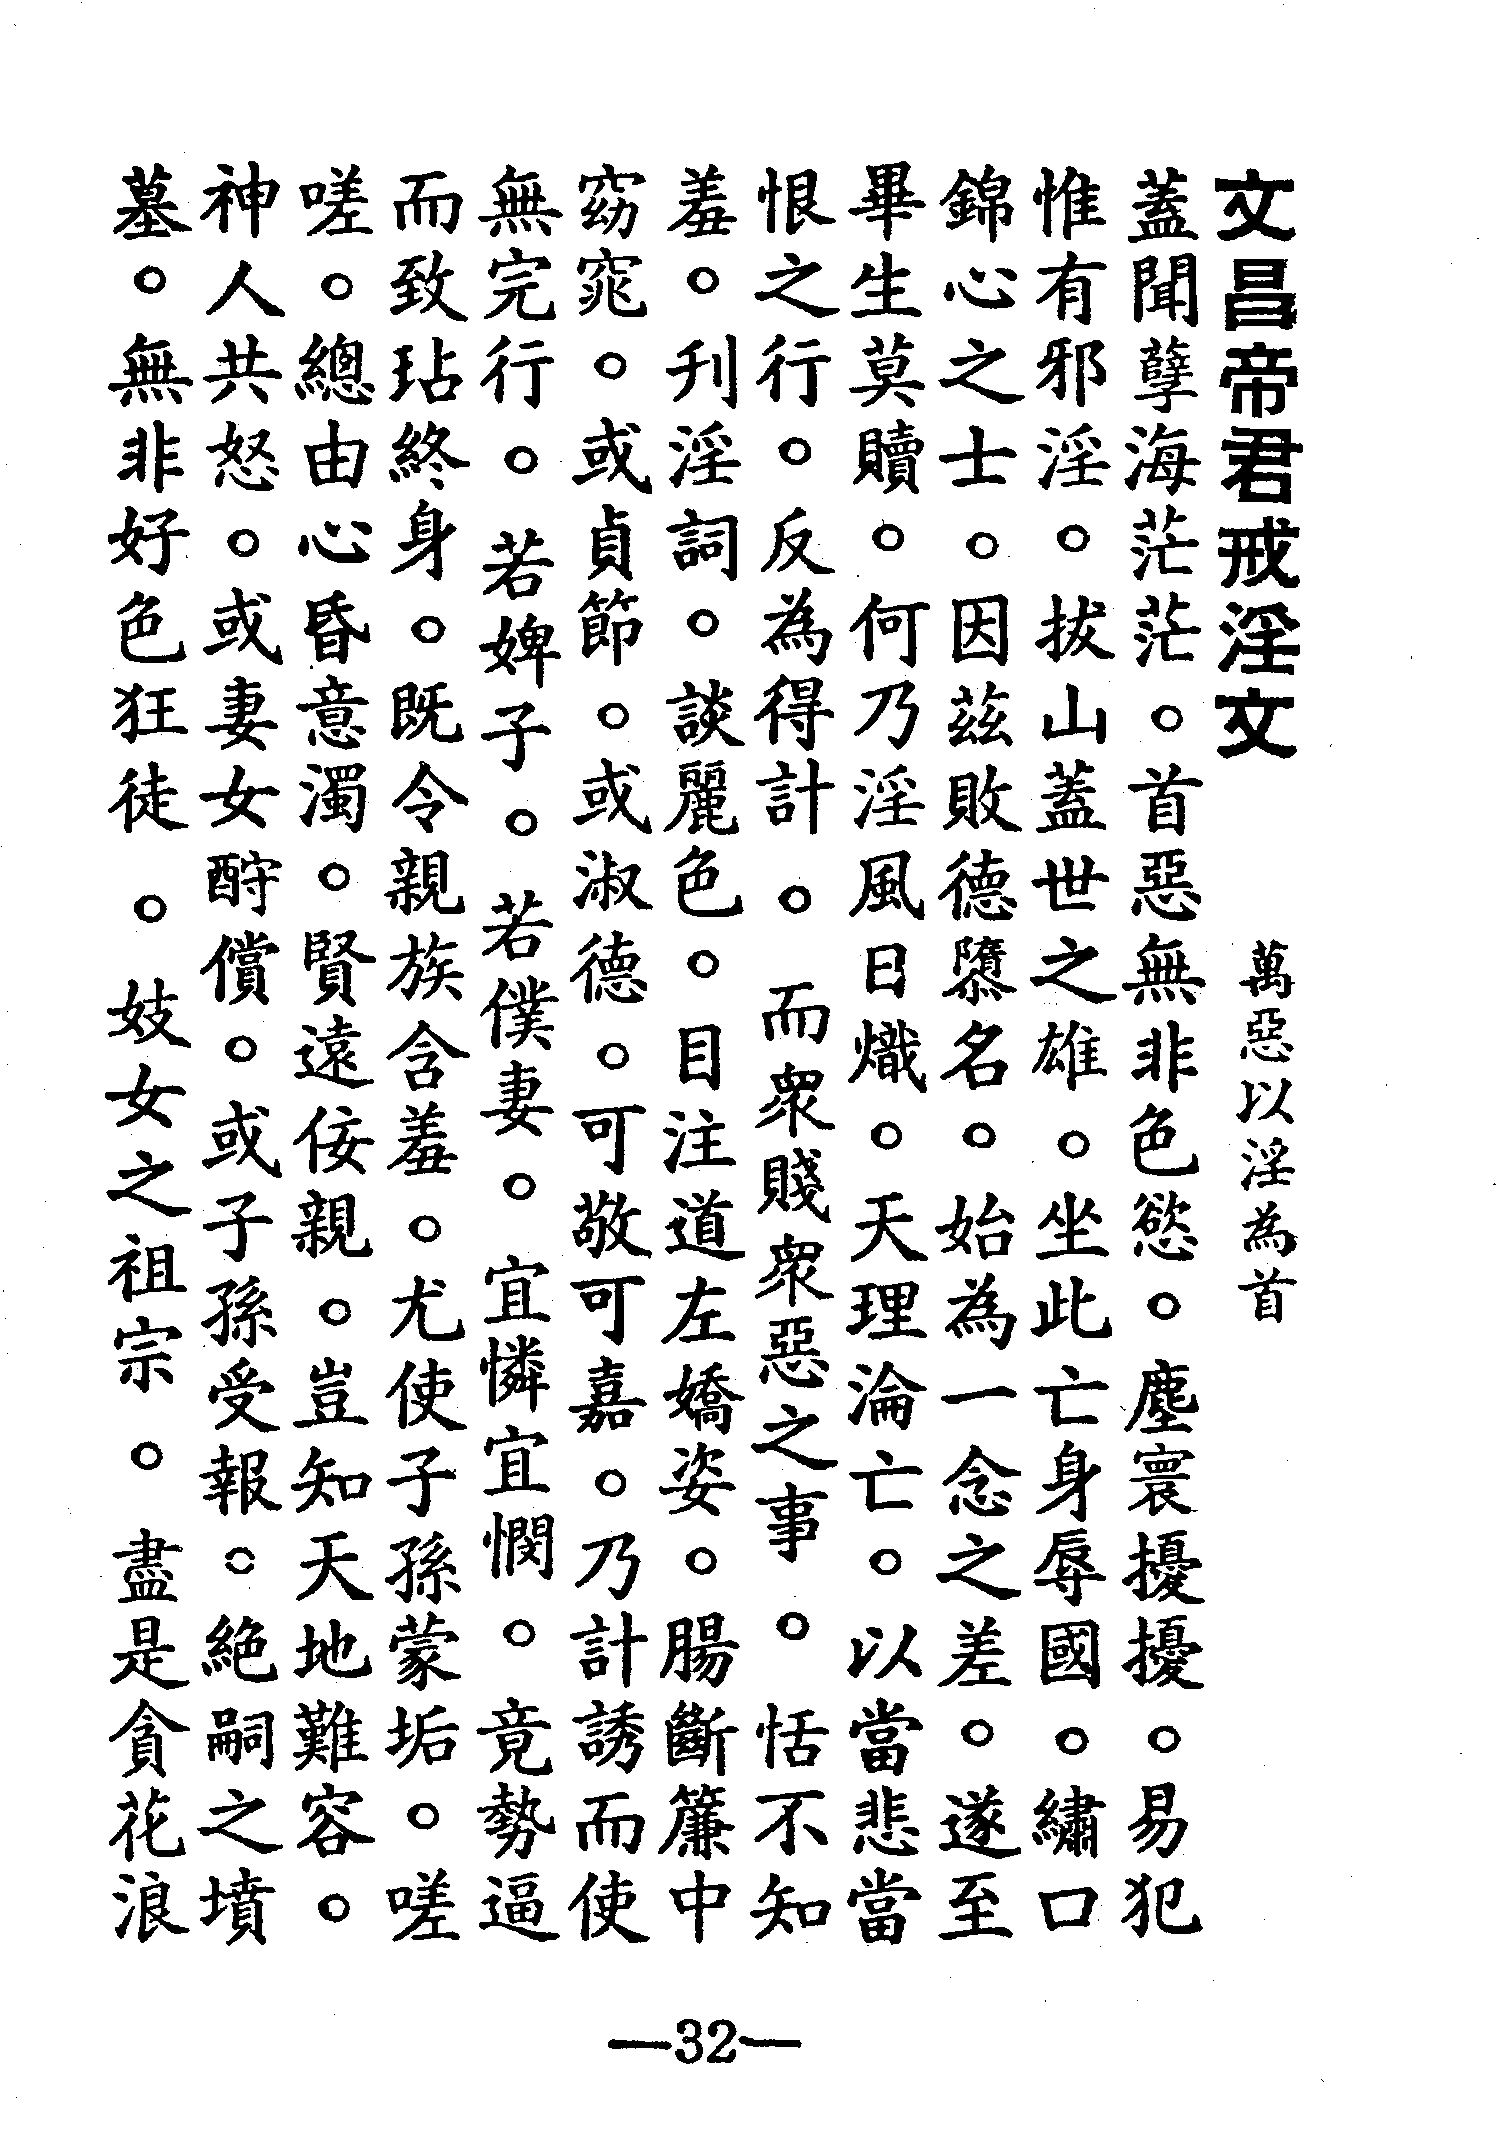 文昌帝君戒淫文　萬惡以淫為首
蓋聞孽海茫茫。首惡無非色慾。塵寰擾擾。易犯
惟有邪淫。拔山蓋世之雄。坐此亡身辱國。繡口
錦心之士。因茲敗德隳名。始為一念之差。遂至
畢生莫贖。何乃淫風日熾。天理淪亡。以當悲當
恨之行。反為得計。而衆賤衆惡之事。恬不知
羞。刋淫詞。談麗色。目注道左嬌姿。腸斷簾中
窈窕。或貞節。或淑德。可敬可嘉。乃計誘而使
無完行。若婢子。若僕妻。宜憐宜憫。竟勢逼
而致玷終身。既令親族含羞。尤使子孫蒙垢。嗟
嗟。總由心昏意濁。賢遠佞親。豈知天地難容。
神人共怒。或妻女酧償。或子孫受報。絕嗣之墳
墓。無非好色狂徒。妓女之祖宗。盡是貪花浪
—32—